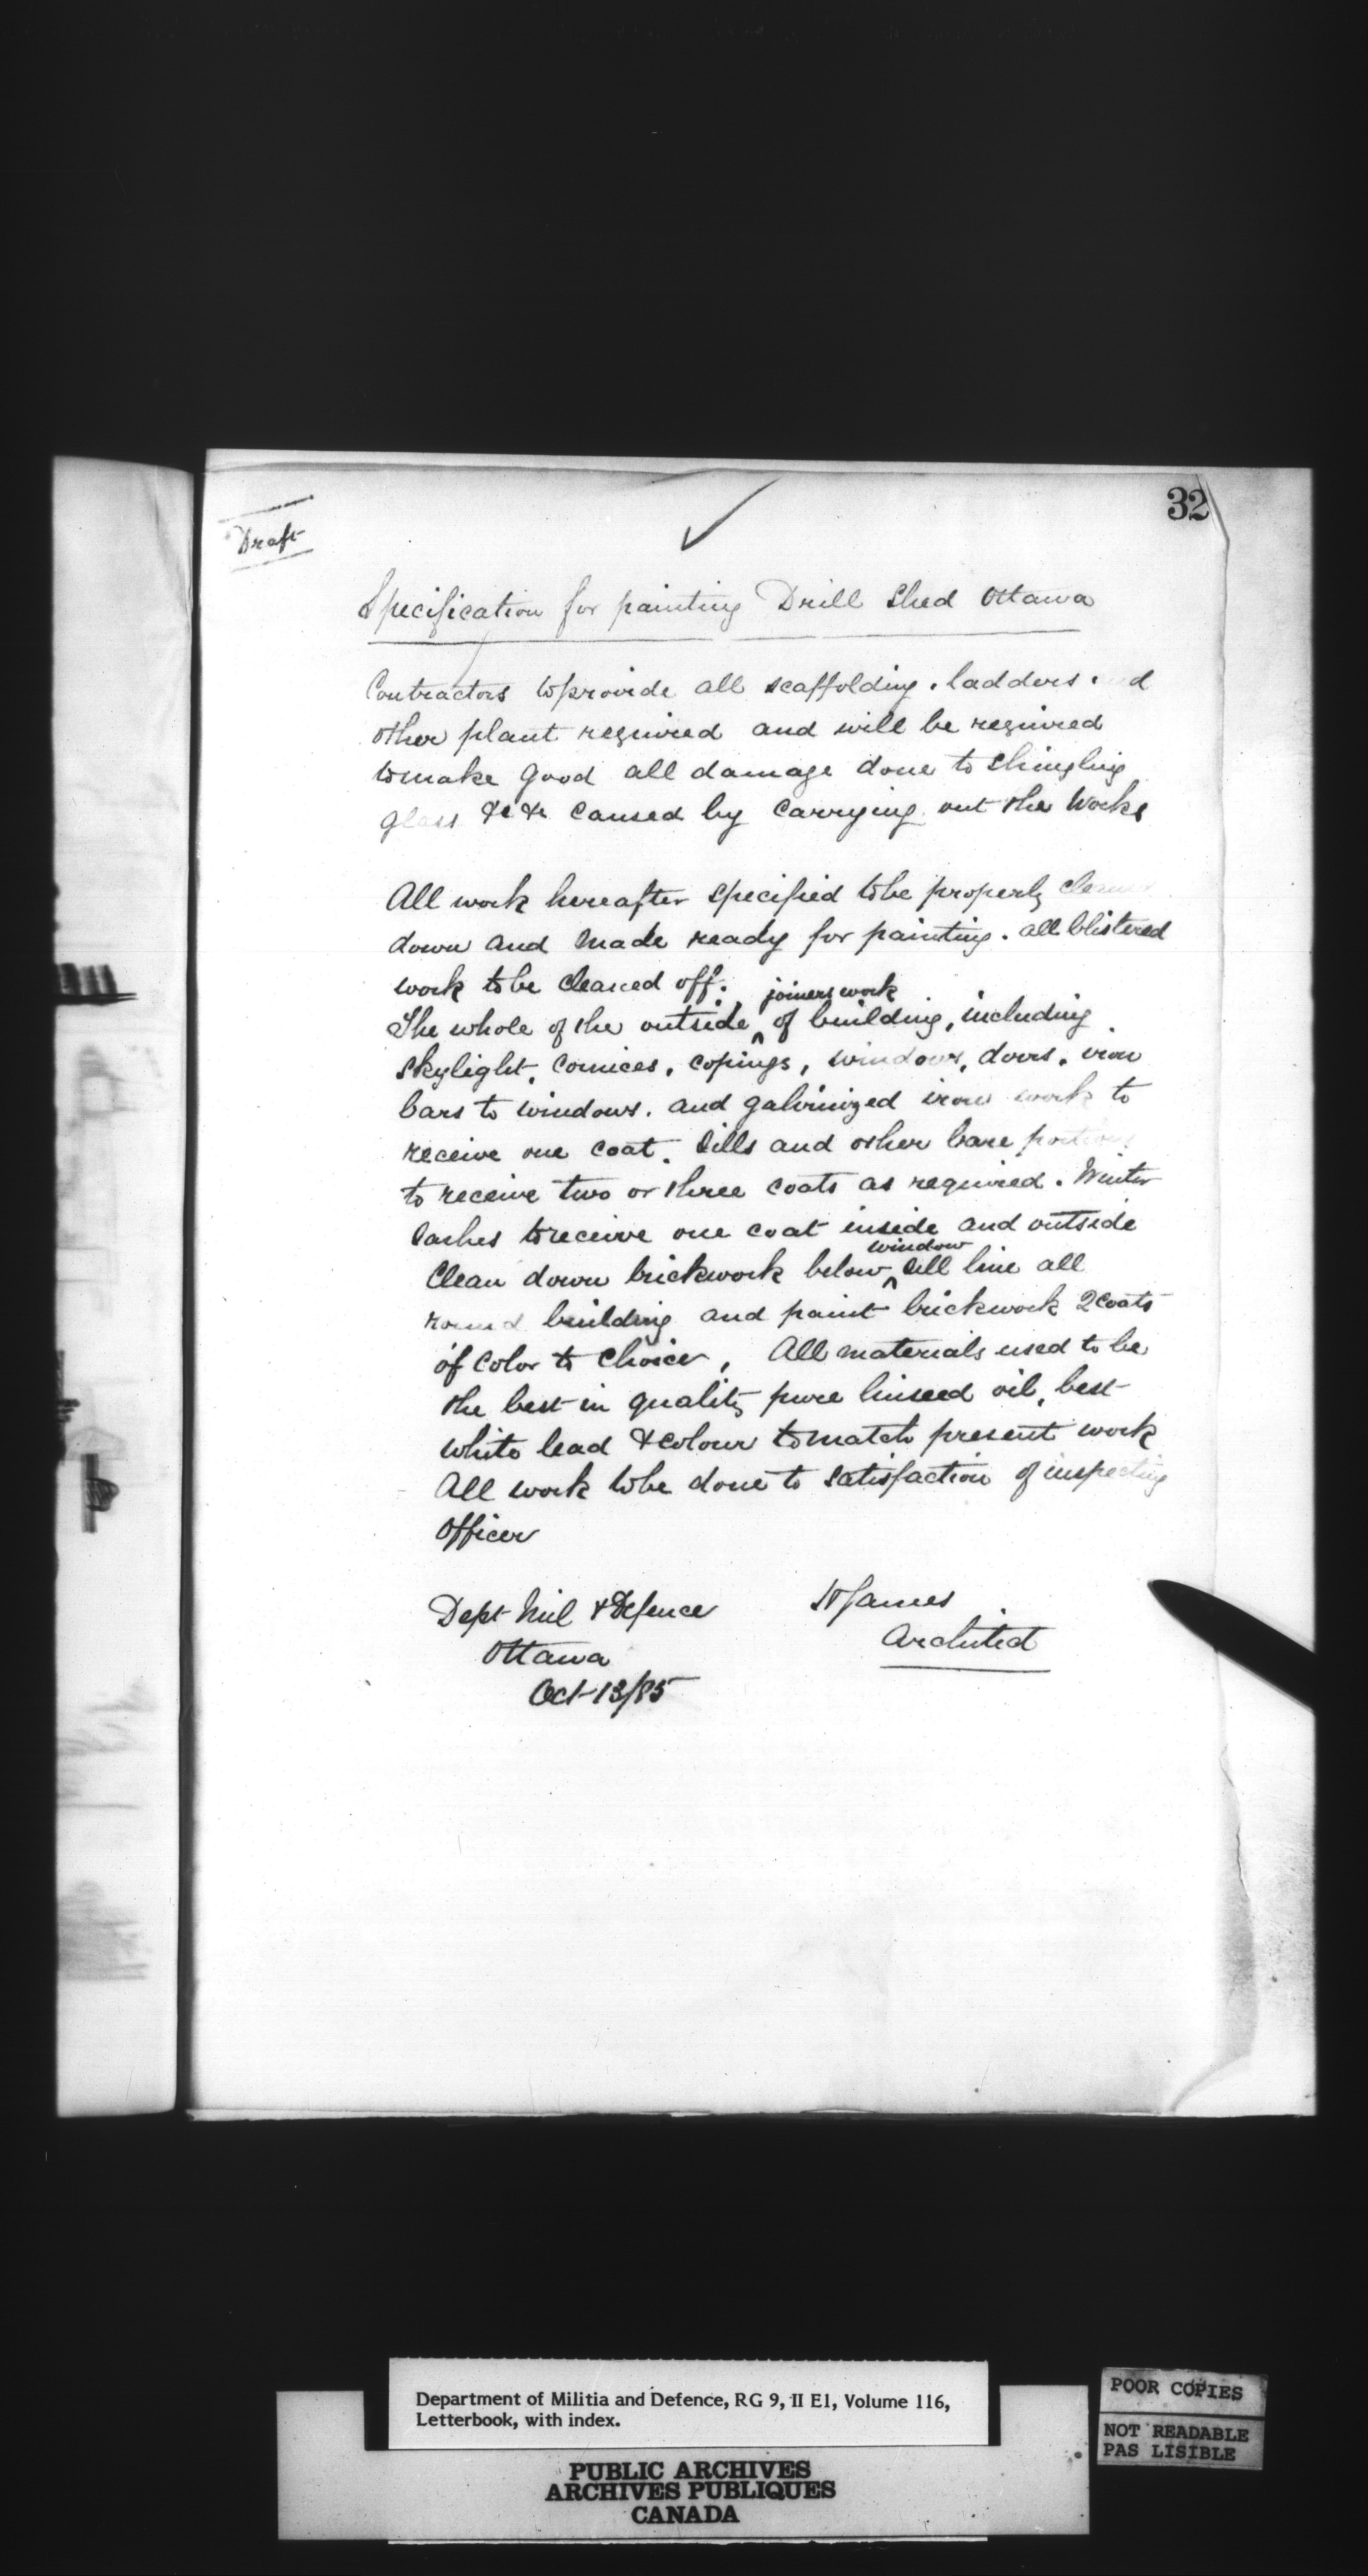 32
Draft
Specification for painting Drill Shed Ottawa
Contractors to provide all scaffolding. ladders.
other plant required and will be required
to make good all damage done to Shingling
glass &c &c caused by carrying out the Works
All work hereafter specified to be properly cleaned
down and made ready for painting. all blistered
work to be cleaned off.
joiners work
The whole of the outside ^ of building, including
Skylight, cornices, copings, windows, doors, iron
bars to windows. and galvinized iron work to
receive one coat. Sills and other bare portions
to receive two or three coats as required. Winter
Sashes to receive one coat inside and outside
window
Clean down brickwork below ^ Sill line all
round building and paint brickwork 2 coats
of color to choice, All materials used to be
the best in quality pure linseed oil, best
white lead & colour to match present work
All work to be done to satisfaction of inspecting
Officer
Dept Mil & Defence
James
Architect
Ottawa
Oct 13/85
Department of Militia and Defence, RG 9, II E1, Volume 116,
Letterbook, with index.
PUBLIC ARCHIVES
ARCHIVES PUBLIQUES
CANADA
POOR COPIES
NOT READABLE
PAS LISIBLE